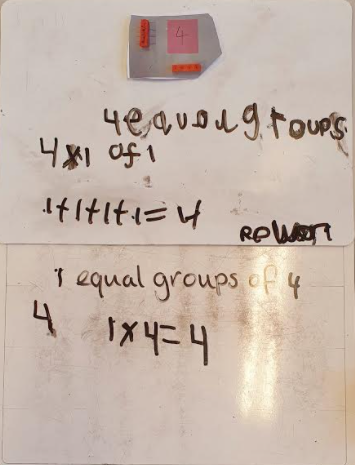 4
4 equal groups
4x1 of 1
1+1+1+1=4
1 equal groups of 4
4 1x4=4